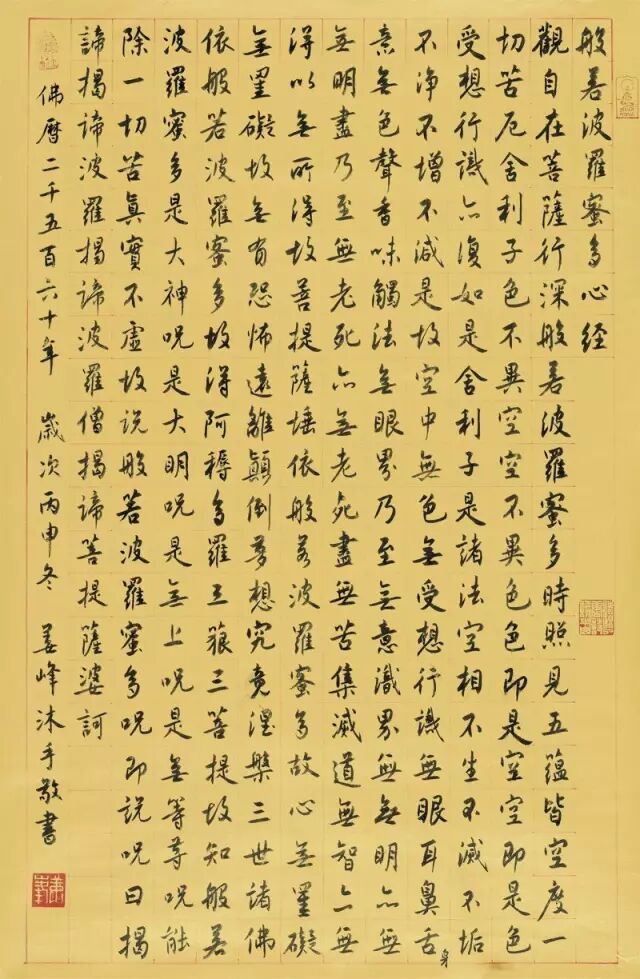 般若波羅蜜多心経
觀自在菩薩行深般若波羅蜜多時照見五蘊皆空度一
切苦厄舍利子色不異空空不異色色即是空空即是色
受想行識亦復如是舍利子是諸法空相不生不滅不垢
不淨不增不減是故空中無色無受想行識無眼耳鼻舌身
意無色聲香味觸法無眼界乃至無意識界無無明亦無
無明盡乃至無老死亦無老死盡無苦集滅道無智亦無
得以無所得故菩提薩埵依般若波羅蜜多故心無罣礙
無罣礙故無有恐怖遠離顛倒夢想究竟涅槃三世諸佛
依般若波羅蜜多故得阿耨多羅三藐三菩提故知般若
波羅蜜多是大神呪是大明呪是無上呪是無等等呪能
除一切苦真實不虛故説般若波羅蜜多呪即説呪曰揭
諦揭諦波羅揭諦波羅僧揭諦菩提薩婆訶
佛曆二千五百六十年 歲次丙申冬 姜峰沐手敬書